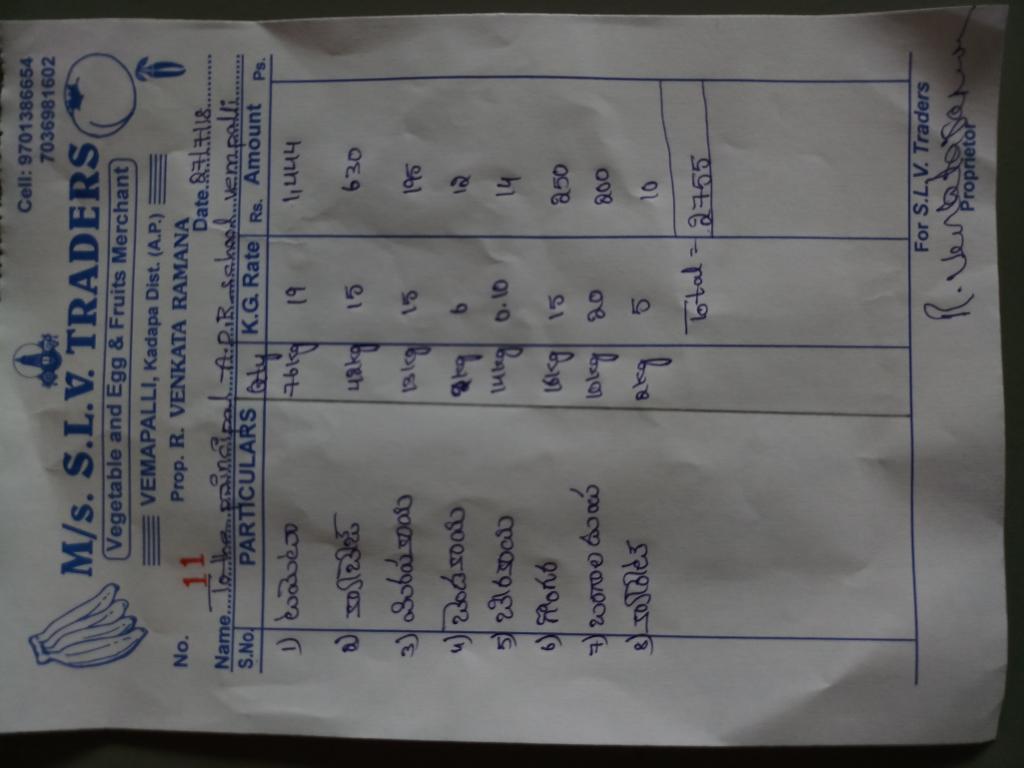 Cell: 9701386654
7036981602
M/s. S.L.V. TRADERS
Vegetable and Egg & Fruits Merchant
VEMAPALLI, Kadapa Dist. (A.P.)
Prop. R. VENKATA RAMANA
No. 11 Date 27.7.18
Name To the principal A.P.R school vempalli
S.No. PARTICULARS Qty K.G. Rate Rs. Amount Ps.
1) టమాటా 76kg 19 1,444
2) 42kg 15 630
3) 13kg 15 195
4) 2kg 6 12
5) 14kg 0.10 14
6) 16kg 15 250
7) 10kg 20 200
8) 2kg 5 10
Total = 2755
For S.L.V. Traders
R. Venkata Ramana
Proprietor